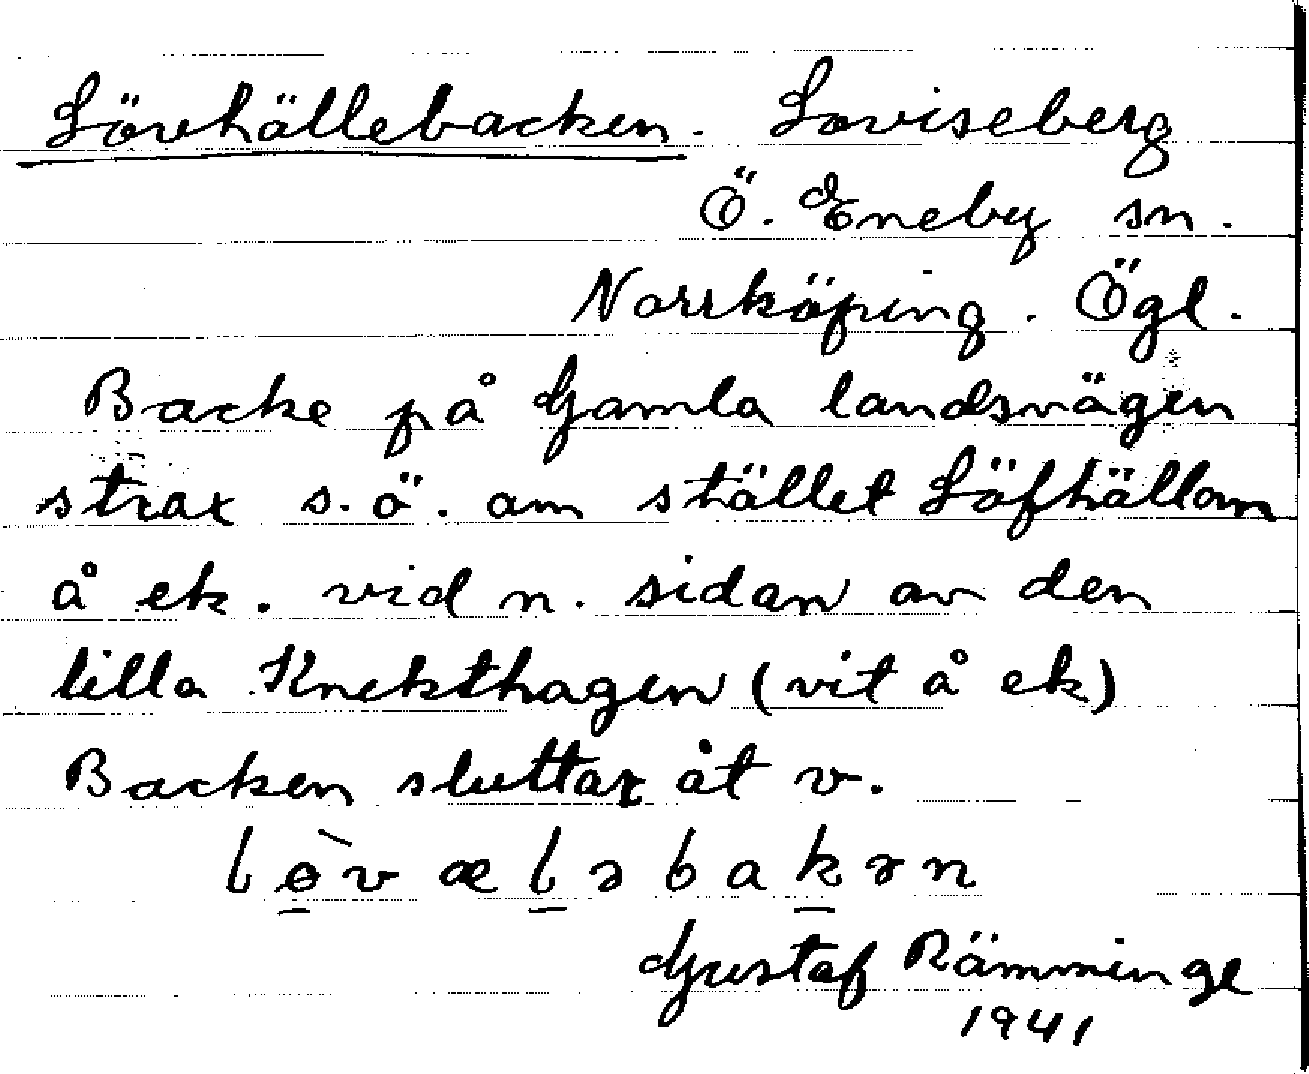 Lövhällebacken. Loviseberg
Ö. Eneby sn.
Norrköping. Ögl.
Backe på Gamla landsvägen
strax s.ö. om stället Löfhällom
å ek. vid n. sidan av den
lilla Knekthagen (vit å ek)
Backen sluttar åt v.
lɵ̀vælәbakәn
Gustaf Rämminge
1941